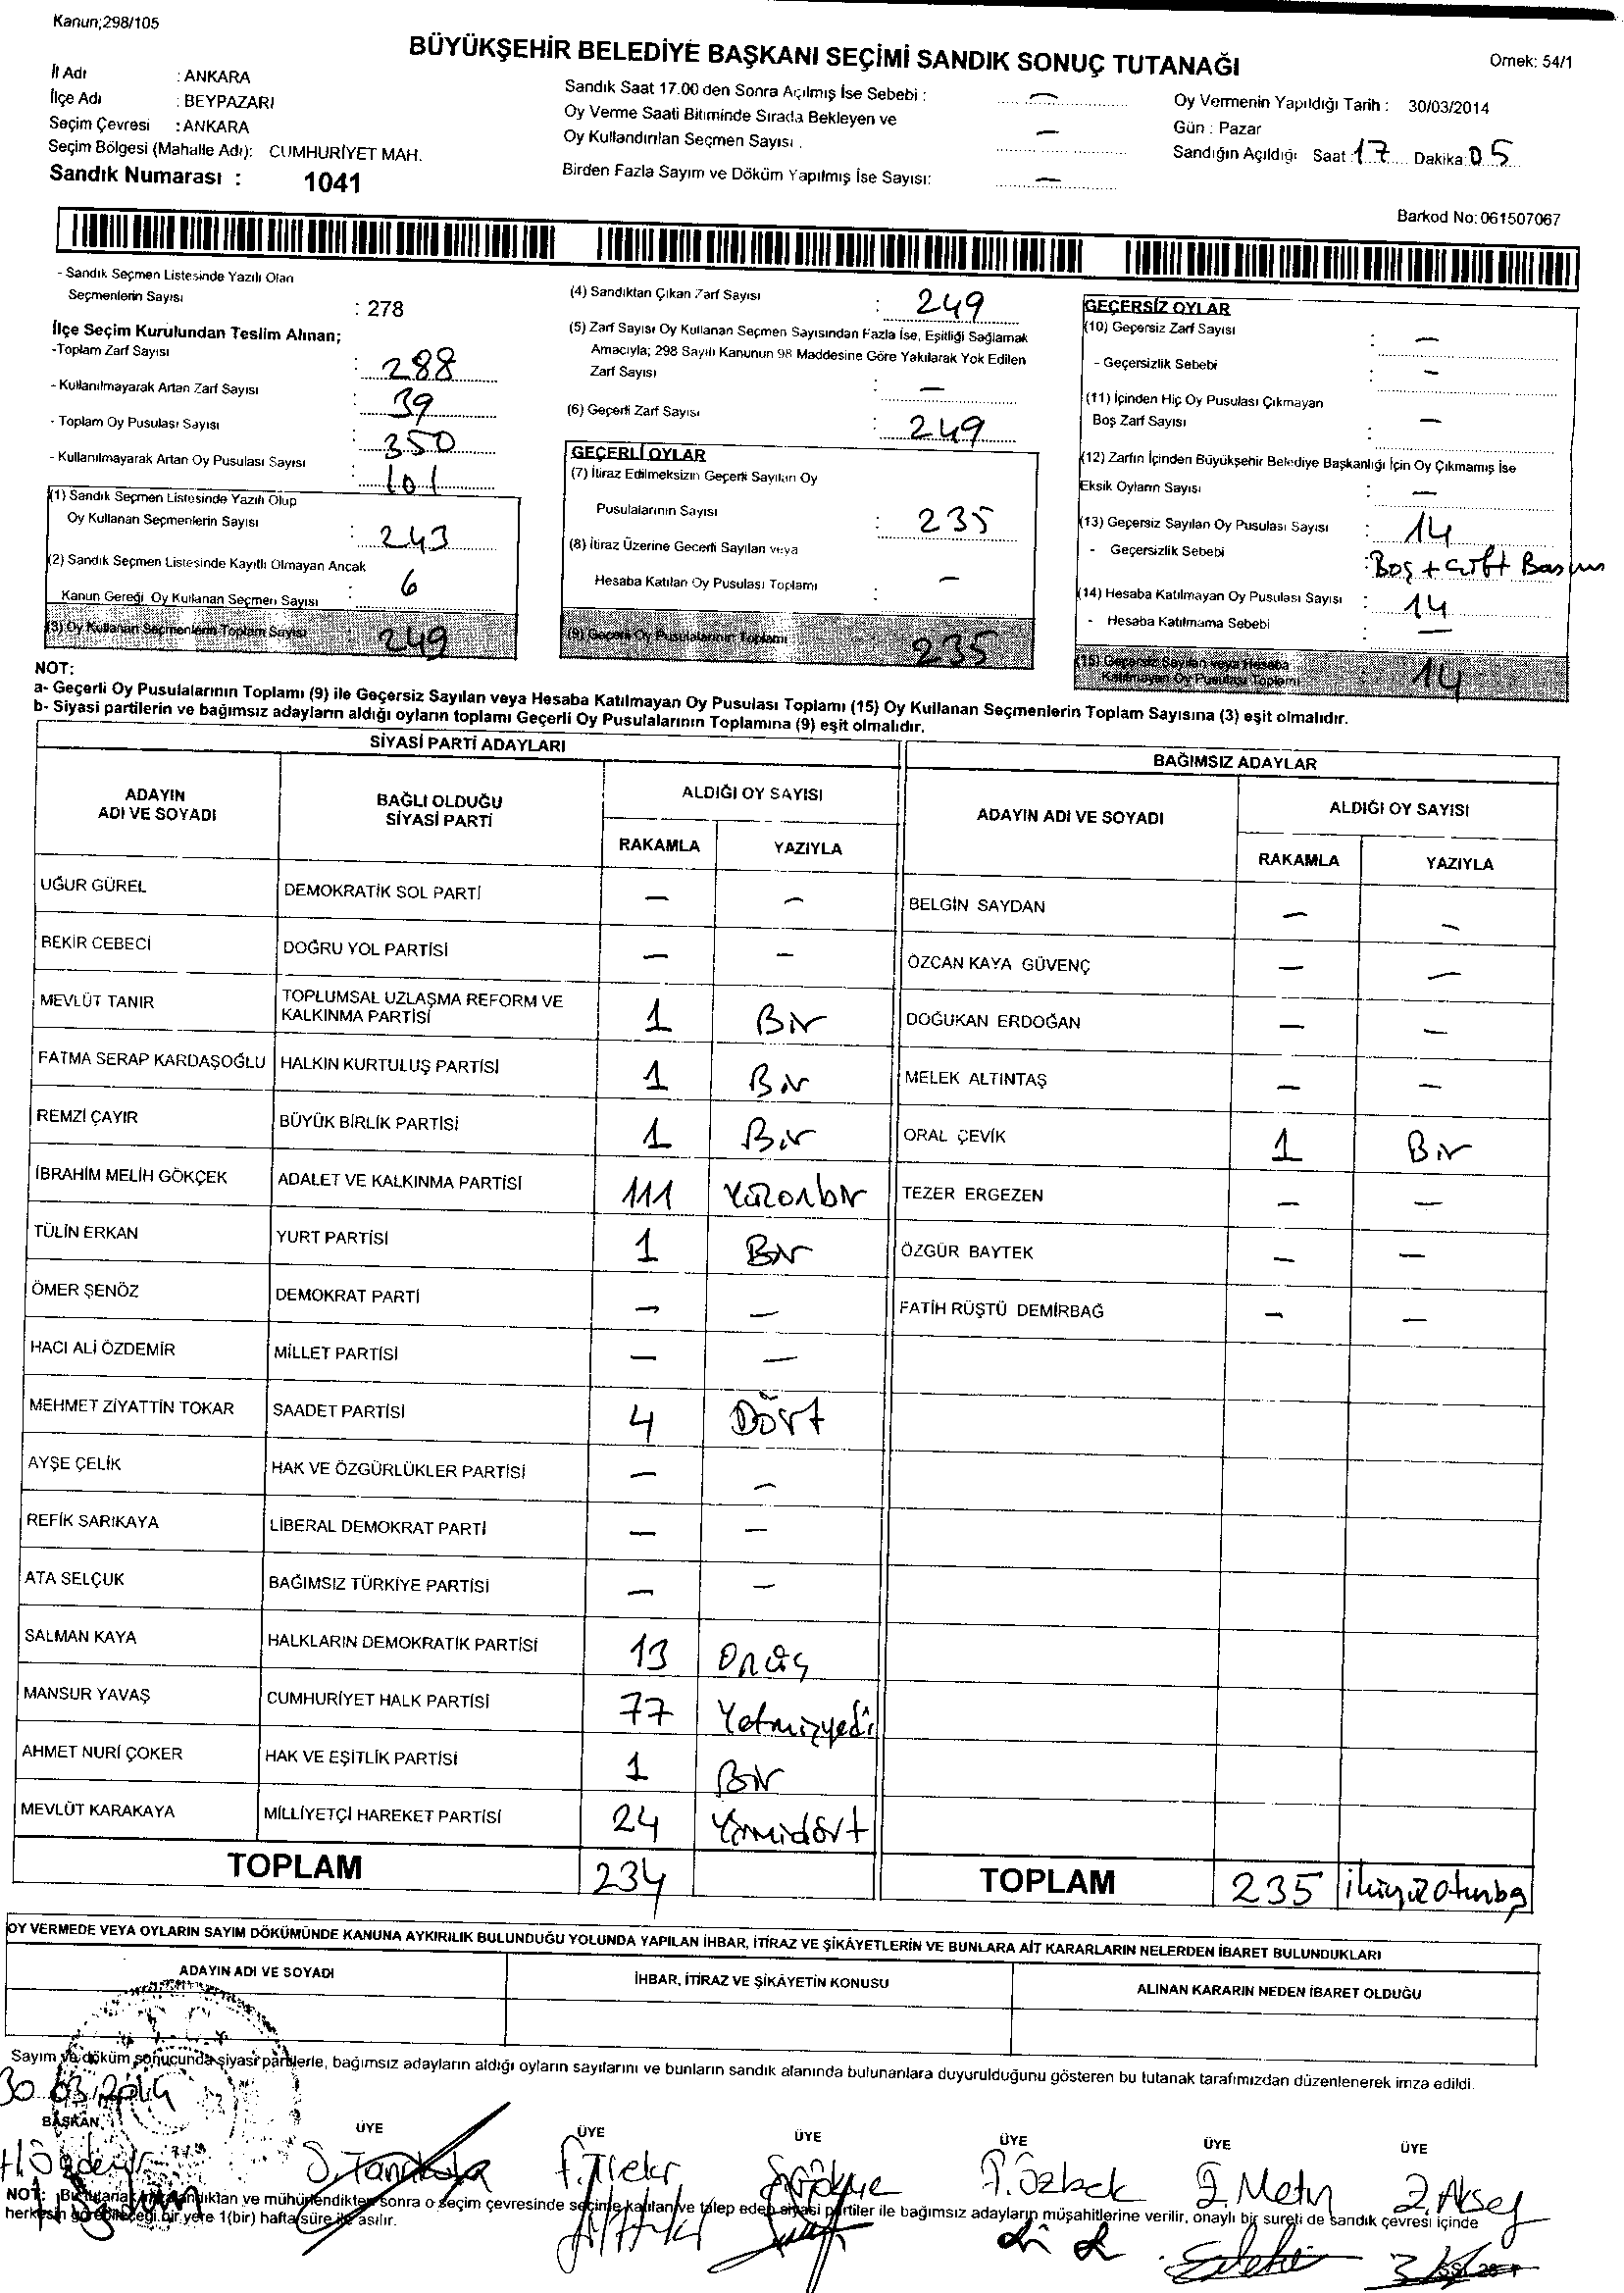 Kanun;298/105
BÜYÜKŞEHİR BELEDİYE BAŞKANI SEÇİMİ SANDIK SONUÇ TUTANAĞI
Örnek: 54/1
İl Adı : ANKARA
İlçe Adı : BEYPAZARI
Seçim Çevresi : ANKARA
Seçim Bölgesi (Mahalle Adı): CUMHURİYET MAH.
Sandık Numarası : 1041
Sandık Saat 17.00 den Sonra Açılmış İse Sebebi : —
Oy Verme Saati Bitiminde Sırada Bekleyen ve
Oy Kullandırılan Seçmen Sayısı : —
Birden Fazla Sayım ve Döküm Yapılmış İse Sayısı: —
Oy Vermenin Yapıldığı Tarih : 30/03/2014
Gün : Pazar
Sandığın Açıldığı Saat 17 Dakika: 05
Barkod No: 061507067
- Sandık Seçmen Listesinde Yazılı Olan
Seçmenlerin Sayısı : 278
İlçe Seçim Kurulundan Teslim Alınan;
-Toplam Zarf Sayısı : 288
- Kullanılmayarak Artan Zarf Sayısı : 39
- Toplam Oy Pusulası Sayısı : 350
- Kullanılmayarak Artan Oy Pusulası Sayısı : 101
(1) Sandık Seçmen Listesinde Yazılı Olup
Oy Kullanan Seçmenlerin Sayısı : 243
(2) Sandık Seçmen Listesinde Kayıtlı Olmayan Ancak
Kanun Gereği Oy Kullanan Seçmen Sayısı : 6
(3) Oy Kullanan Seçmenlerin Toplam Sayısı : 249
(4) Sandıktan Çıkan Zarf Sayısı : 249
(5) Zarf Sayısı Oy Kullanan Seçmen Sayısından Fazla İse, Eşitliği Sağlamak
Amacıyla; 298 Sayılı Kanunun 98 Maddesine Göre Yakılarak Yok Edilen
Zarf Sayısı : —
(6) Geçerli Zarf Sayısı : 249
GEÇERLİ OYLAR
(7) İtiraz Edilmeksizin Geçerli Sayılan Oy
Pusulalarının Sayısı : 235
(8) İtiraz Üzerine Geçerli Sayılan veya
Hesaba Katılan Oy Pusulası Toplamı : —
(9) Geçerli Oy Pusulalarının Toplamı : 235
GEÇERSİZ OYLAR
(10) Geçersiz Zarf Sayısı : —
- Geçersizlik Sebebi : —
(11) İçinden Hiç Oy Pusulası Çıkmayan
Boş Zarf Sayısı : —
(12) Zarfın İçinden Büyükşehir Belediye Başkanlığı İçin Oy Çıkmamış İse
Eksik Oyların Sayısı : —
(13) Geçersiz Sayılan Oy Pusulası Sayısı : 14
- Geçersizlik Sebebi : Boş + Çift Basım
(14) Hesaba Katılmayan Oy Pusulası Sayısı : 14
- Hesaba Katılmama Sebebi : —
(15) Geçersiz Sayılan veya Hesaba
Katılmayan Oy Pusulası Toplamı : 14
NOT:
a- Geçerli Oy Pusulalarının Toplamı (9) ile Geçersiz Sayılan veya Hesaba Katılmayan Oy Pusulası Toplamı (15) Oy Kullanan Seçmenlerin Toplam Sayısına (3) eşit olmalıdır.
b- Siyasi partilerin ve bağımsız adayların aldığı oyların toplamı Geçerli Oy Pusulalarının Toplamına (9) eşit olmalıdır.
SİYASİ PARTİ ADAYLARI
ADAYIN ADI VE SOYADI BAĞLI OLDUĞU SİYASİ PARTİ ALDIĞI OY SAYISI
RAKAMLA YAZIYLA
UĞUR GÜREL DEMOKRATİK SOL PARTİ — —
BEKİR CEBECİ DOĞRU YOL PARTİSİ — —
MEVLÜT TANIR TOPLUMSAL UZLAŞMA REFORM VE KALKINMA PARTİSİ 1 Bir
FATMA SERAP KARDAŞOĞLU HALKIN KURTULUŞ PARTİSİ 1 Bir
REMZİ ÇAYIR BÜYÜK BİRLİK PARTİSİ 1 Bir
İBRAHİM MELİH GÖKÇEK ADALET VE KALKINMA PARTİSİ 111 Yüzonbir
TÜLİN ERKAN YURT PARTİSİ 1 Bir
ÖMER ŞENÖZ DEMOKRAT PARTİ — —
HACI ALİ ÖZDEMİR MİLLET PARTİSİ — —
MEHMET ZİYATTİN TOKAR SAADET PARTİSİ 4 Dört
AYŞE ÇELİK HAK VE ÖZGÜRLÜKLER PARTİSİ — —
REFİK SARIKAYA LİBERAL DEMOKRAT PARTİ — —
ATA SELÇUK BAĞIMSIZ TÜRKİYE PARTİSİ — —
SALMAN KAYA HALKLARIN DEMOKRATİK PARTİSİ 13 Onüç
MANSUR YAVAŞ CUMHURİYET HALK PARTİSİ 77 Yetmişyedi
AHMET NURİ ÇOKER HAK VE EŞİTLİK PARTİSİ 1 Bir
MEVLÜT KARAKAYA MİLLİYETÇİ HAREKET PARTİSİ 24 Yirmidört
TOPLAM 234
BAĞIMSIZ ADAYLAR
ADAYIN ADI VE SOYADI ALDIĞI OY SAYISI
RAKAMLA YAZIYLA
BELGİN SAYDAN — —
ÖZCAN KAYA GÜVENÇ — —
DOĞUKAN ERDOĞAN — —
MELEK ALTINTAŞ — —
ORAL ÇEVİK 1 Bir
TEZER ERGEZEN — —
ÖZGÜR BAYTEK — —
FATİH RÜŞTÜ DEMİRBAĞ — —
TOPLAM 235
OY VERMEDE VEYA OYLARIN SAYIM DÖKÜMÜNDE KANUNA AYKIRILIK BULUNDUĞU YOLUNDA YAPILAN İHBAR, İTİRAZ VE ŞİKÂYETLERİN VE BUNLARA AİT KARARLARIN NELERDEN İBARET BULUNDUKLARI
ADAYIN ADI VE SOYADI İHBAR, İTİRAZ VE ŞİKÂYETİN KONUSU ALINAN KARARIN NEDEN İBARET OLDUĞU
Sayım ve döküm sonucunda siyasi partilerle, bağımsız adayların aldığı oyların sayılarını ve bunların sandık alanında bulunanlara duyurulduğunu gösteren bu tutanak tarafımızdan düzenlenerek imza edildi.
30.03.2014
BAŞKAN ÜYE ÜYE ÜYE ÜYE ÜYE ÜYE
F. Ö. Özbek Metin
NOT: Bu tutanak imzalandıktan ve mühürlendikten sonra o seçim çevresinde seçime katılan ve talep eden siyasi partiler ile bağımsız adayların müşahitlerine verilir, onaylı bir sureti de sandık çevresi içinde
herkesin görebileceği bir yere 1(bir) hafta süre ile asılır.